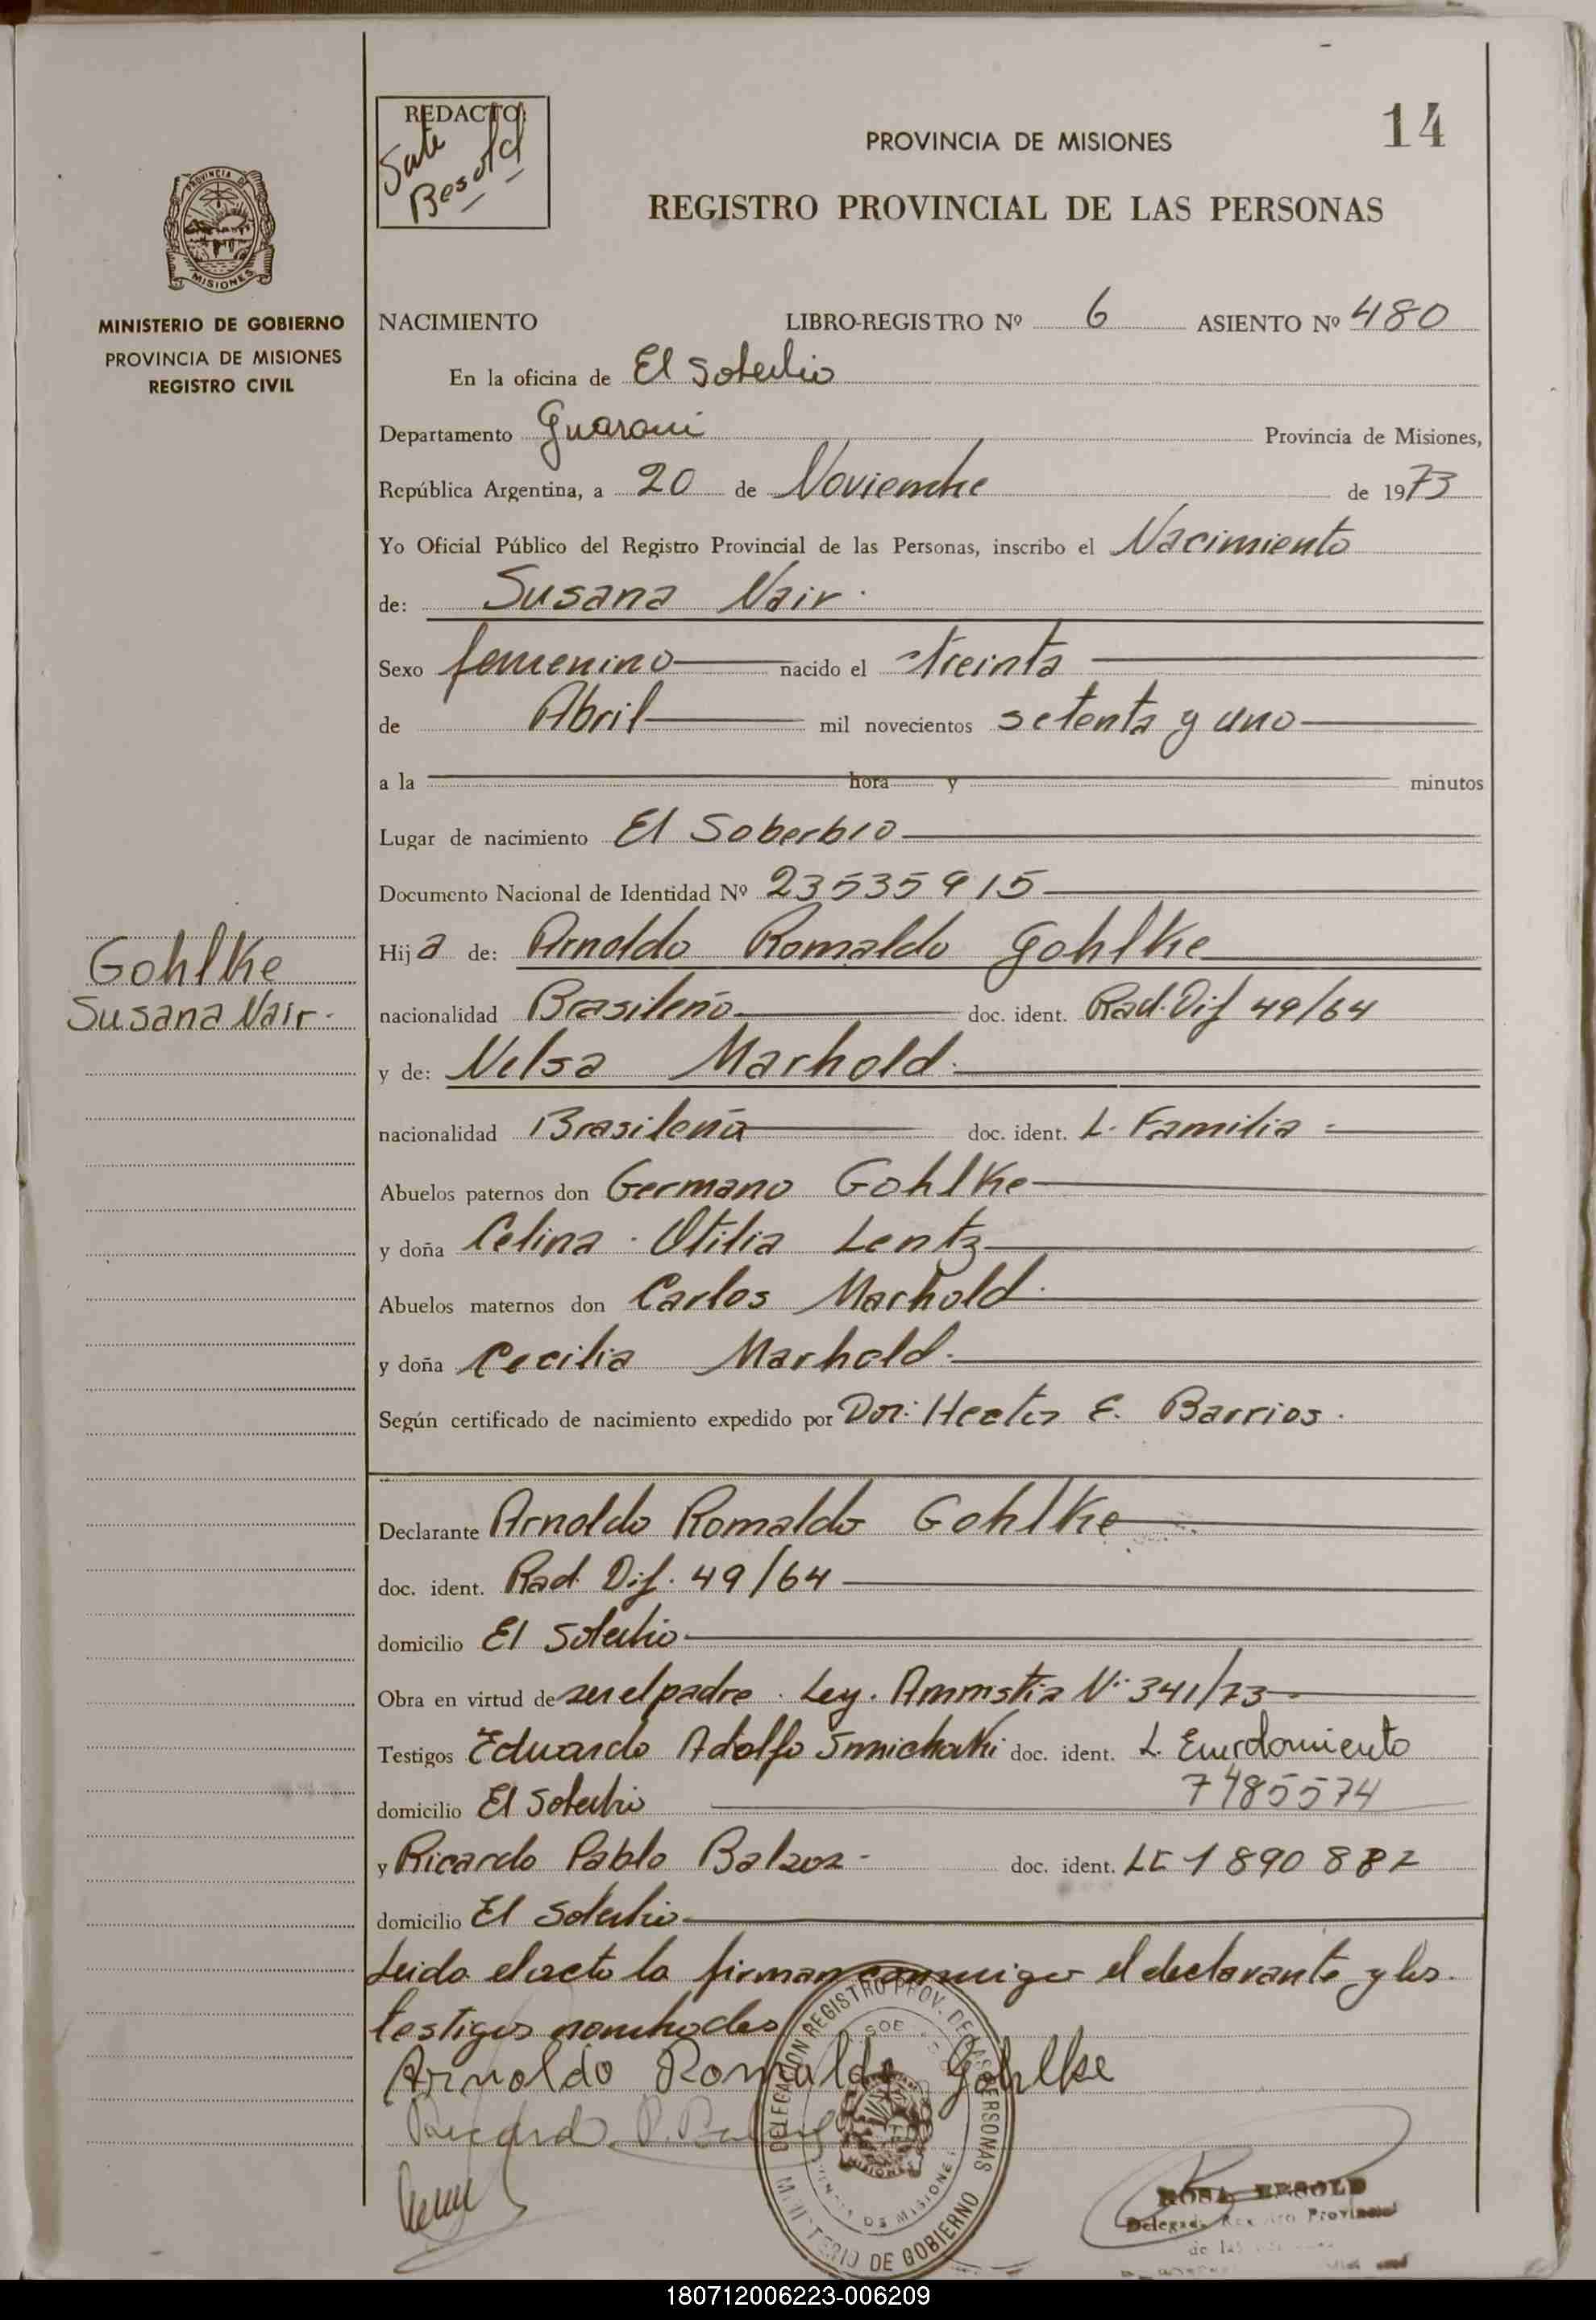 14
REDACTO:
Sate
Besold
PROVINCIA DE MISIONES
REGISTRO PROVINCIAL DE LAS PERSONAS
PROVINCIA DE
MISIONES
MINISTERIO DE GOBIERNO
PROVINCIA DE MISIONES
REGISTRO CIVIL
NACIMIENTO LIBRO-REGISTRO Nº 6 ASIENTO Nº 480
En la oficina de El Soberbio
Departamento Guarani Provincia de Misiones,
República Argentina, a 20 de Noviembre de 1973
Yo Oficial Público del Registro Provincial de las Personas, inscribo el Nacimiento
de: Susana Nair.
Sexo femenino nacido el treinta
de Abril mil novecientos setenta y uno
a la hora y minutos
Lugar de nacimiento El Soberbio
Documento Nacional de Identidad Nº 23535915
Gohlke
Susana Nair.
Hija de: Arnoldo Romaldo Gohlke
nacionalidad Brasileño doc. ident. Rad. Dif 49/64
y de: Nelsa Marhold.
nacionalidad Brasileña doc. ident. L. Familia
Abuelos paternos don Germano Gohlke
y doña Celina Otilia Lentz
Abuelos maternos don Carlos Marhold.
y doña Cecilia Marhold.
Según certificado de nacimiento expedido por Dor: Hector E. Barrios.
Declarante Arnoldo Romaldo Gohlke
doc. ident. Rad. Dif. 49/64
domicilio El Soberbio
Obra en virtud de ser el padre. Ley. Amnistia Nº 341/73
Testigos Eduardo Adolfo doc. ident. L. Enrolamiento
7485574
domicilio El Soberbio
y Ricardo Pablo doc. ident. LE 1890882
domicilio El Soberbio
Leida el acta la firman conmigo el declarante y los
testigos nombrados
Arnoldo Romaldo Gohlke
Ricardo P.
DELEGACION REGISTRO PROV. DE LAS PERSONAS
MINISTERIO DE GOBIERNO
MISIONES
ROSA BESOLD
Delegada Registro Provincial
de las
180712006223-006209